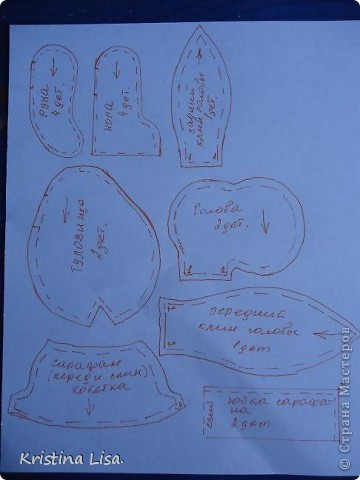 рука
4 дет.
нога
4 дет.
задний
клин головы
1 дет.
туловище
2 дет.
Голова
2 дет.
1
2
передний
клин головы
1 дет
сарафан
(перед и спин)
кокетка
юбка сарафа-
на
2 дет
сгиб
Kristina Lisa.
© Страна Мастеров